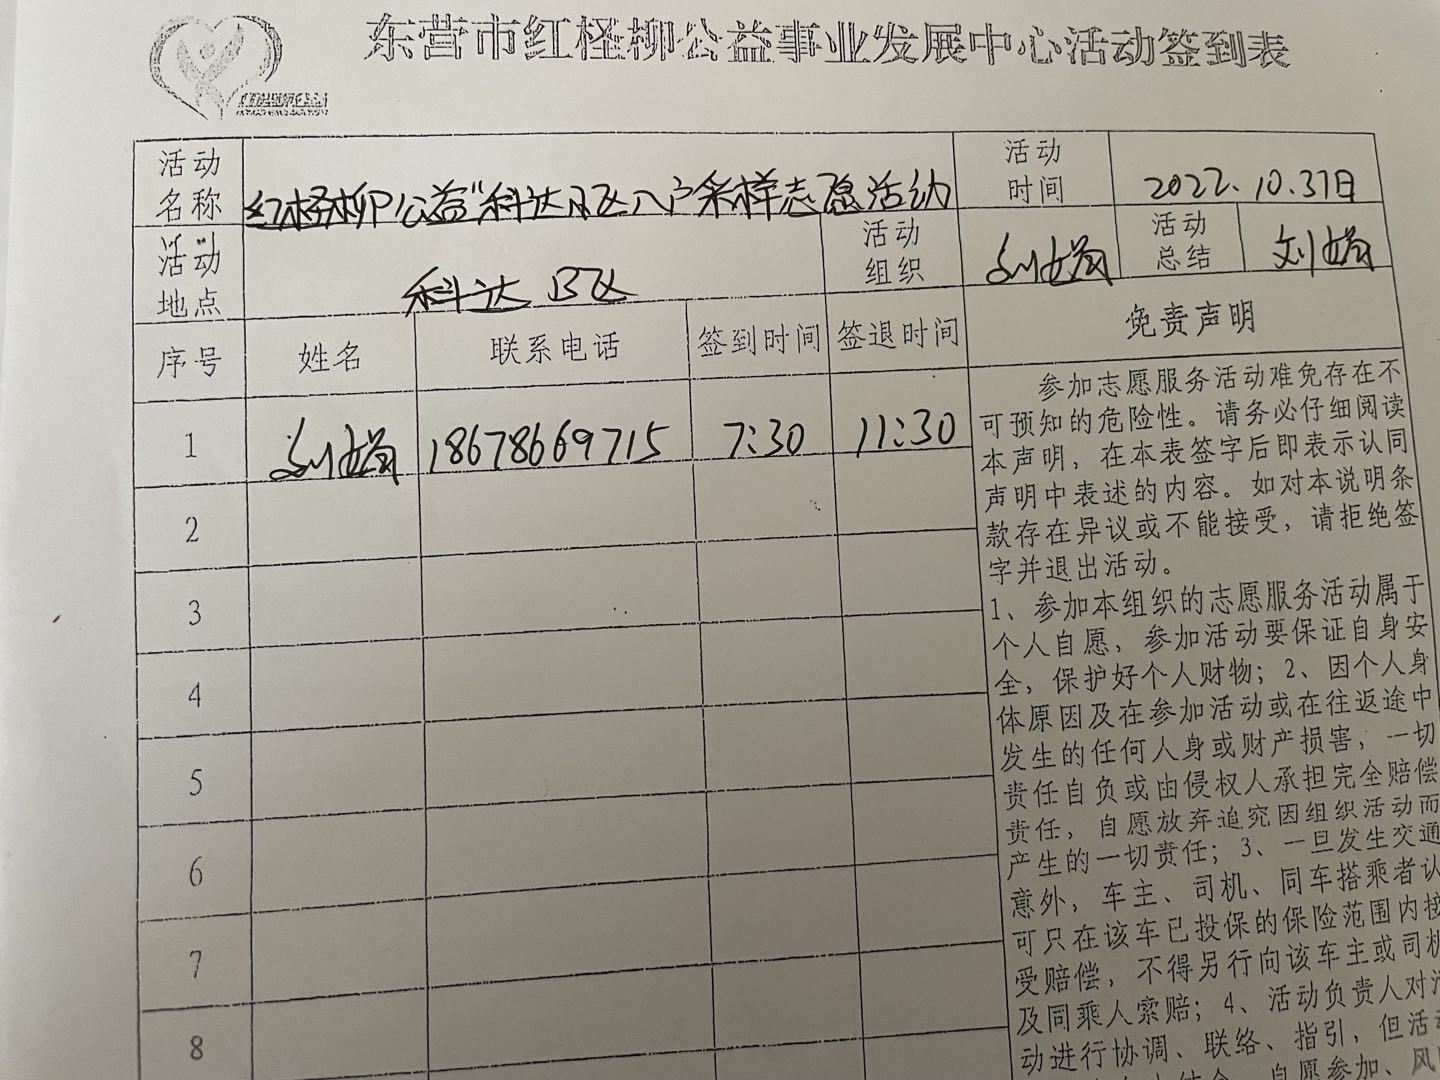 东营市红柽柳公益事业发展中心活动签到表
活动名称
红柽柳公益“科达B区入户采样志愿活动
活动时间
2022.10.31日
活动地点
科达B区
活动组织
刘娟
活动总结
刘娟
序号 姓名 联系电话 签到时间 签退时间 免责声明
1 刘娟 18678669715 7:30 11:30
2
3
4
5
6
7
8
参加志愿服务活动难免存在不
可预知的危险性。请务必仔细阅读
本声明，在本表签字后即表示认同
声明中表述的内容。如对本说明条
款存在异议或不能接受，请拒绝签
字并退出活动。
1、参加本组织的志愿服务活动属于
个人自愿，参加活动要保证自身安
全，保护好个人财物；2、因个人身
体原因及在参加活动或在往返途中
发生的任何人身或财产损害，一切
责任自负或由侵权人承担完全赔偿
责任，自愿放弃追究因组织活动而
产生的一切责任；3、一旦发生交通
意外，车主、司机、同车搭乘者认
可只在该车已投保的保险范围内接
受赔偿，不得另行向该车主或司机
及同乘人索赔；4、活动负责人对活
动进行协调、联络、指引，但活动
自愿参加、风